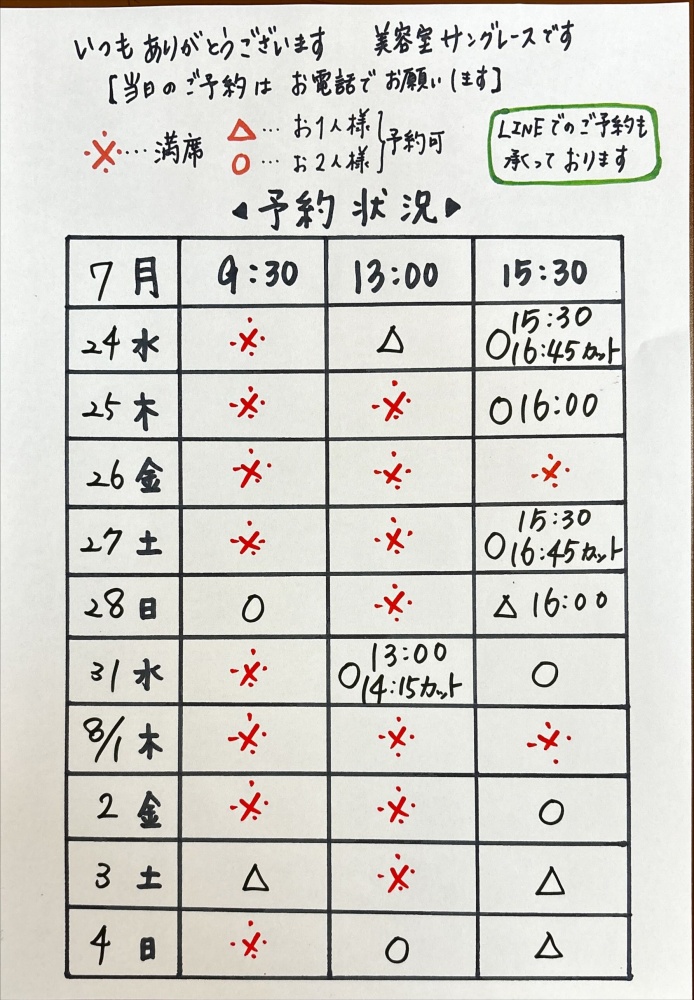 いつもありがとうございます 美容室サングレースです
[当日のご予約は お電話でお願いします]
※…満席
△…お1人様
○…お2人様
予約可
LINEでのご予約も
承っております
◀予約状況▶
7月 9:30 13:00 15:30
24 水 ※ △ ○15:30 16:45カット
25 木 ※ ※ ○16:00
26 金 ※ ※ ※
27 土 ※ ※ ○15:30 16:45カット
28 日 ○ ※ △16:00
31 水 ※ ○13:00 14:15カット ○
8/1 木 ※ ※ ※
2 金 ※ ※ ○
3 土 △ ※ △
4 日 ※ ○ △